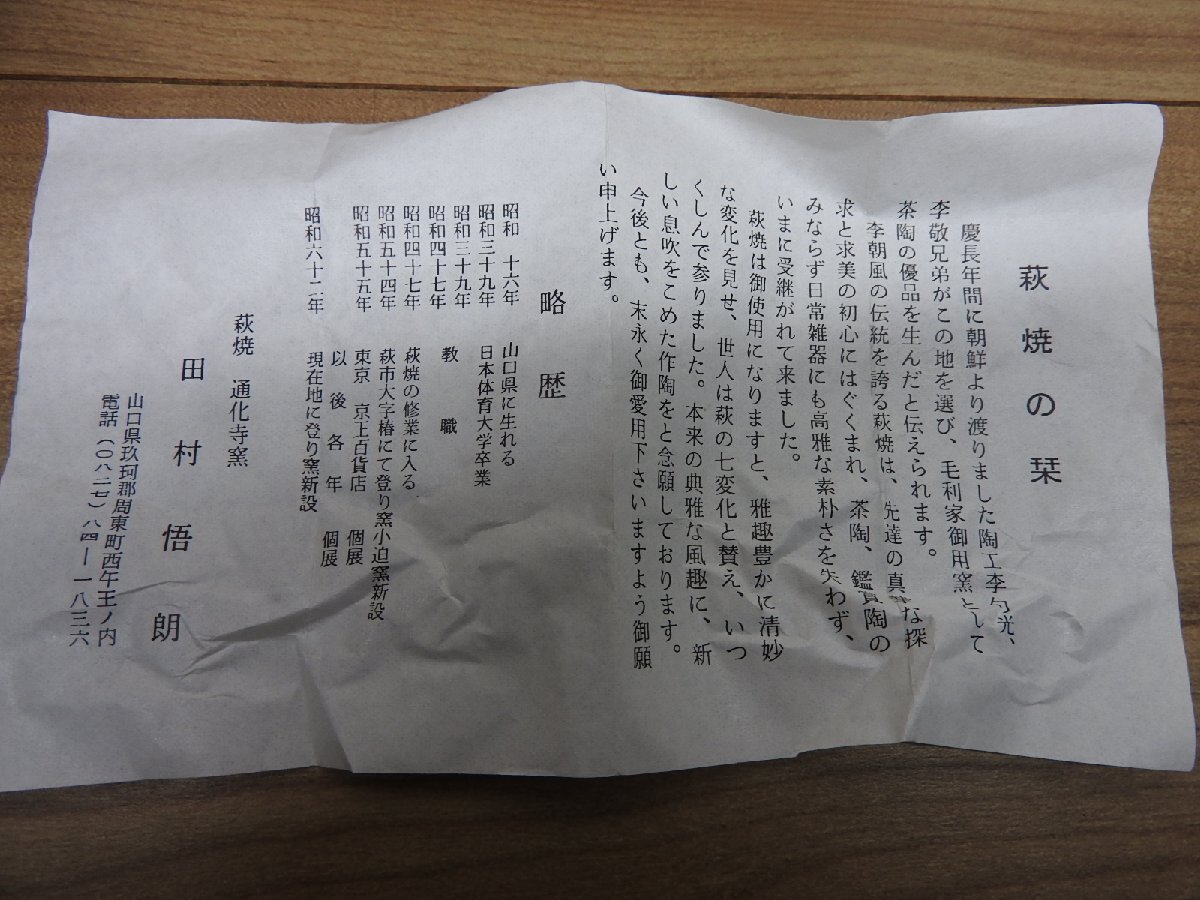 萩焼の栞
慶長年間に朝鮮より渡りました陶工李勺光、
李敬兄弟がこの地を選び、毛利家御用窯として
茶陶の優品を生んだと伝えられます。
李朝風の伝統を誇る萩焼は、先達の真摯な探
求と求美の初心にはぐくまれ、茶陶、鑑賞陶の
みならず日常雑器にも高雅な素朴さを失わず、
いまに受継がれて来ました。
萩焼は御使用になりますと、雅趣豊かに清妙
な変化を見せ、世人は萩の七変化と賛え、いつ
くしんで参りました。本来の典雅な風趣に、新
しい息吹をこめた作陶をと念願しております。
今後とも、末永く御愛用下さいますよう御願
い申上げます。
略歴
昭和 十六年 山口県に生れる
昭和三十九年 日本体育大学卒業
昭和三十九年
昭和四十七年 教職
昭和四十七年 萩焼の修業に入る
昭和五十四年 萩市大字椿にて登り窯小迫窯新設
昭和五十五年 東京 京王百貨店 個展
以後各年 個展
昭和六十二年 現在地に登り窯新設
萩焼 通化寺窯
田村悟朗
山口県玖珂郡周東町西午王ノ内
電話(〇八二七)八四―一八三六